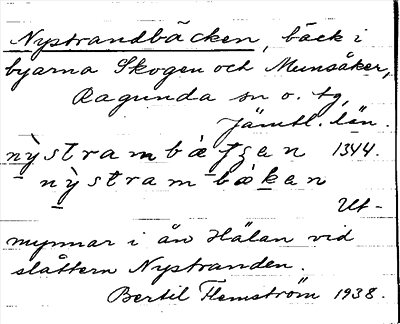 Nystrandbäcken, bäck i
byarna Skogen och Munsåker,
Ragunda sn o. tg,
Jämtl. län.
nỳstrambætʃen 1344.
nỳstrambàken
Ut-
mynnar i ån Hälan vid
slåttern Nystranden.
Bertil Flemström 1938.